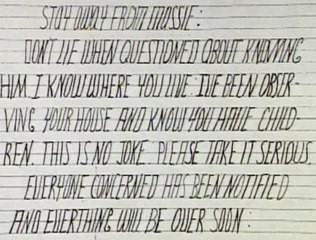 STAY AWAY FROM MASSIE:
DON'T LIE WHEN QUESTIONED ABOUT KNOWING
HIM. I KNOW WHERE YOU LIVE: I'VE BEEN OBSER-
VING YOUR HOUSE AND KNOW YOU HAVE CHILD-
REN. THIS IS NO JOKE. PLEASE TAKE IT SERIOUS.
EVERYONE CONCERNED HAS BEEN NOTIFIED
AND EVERTHING WILL BE OVER SOON: